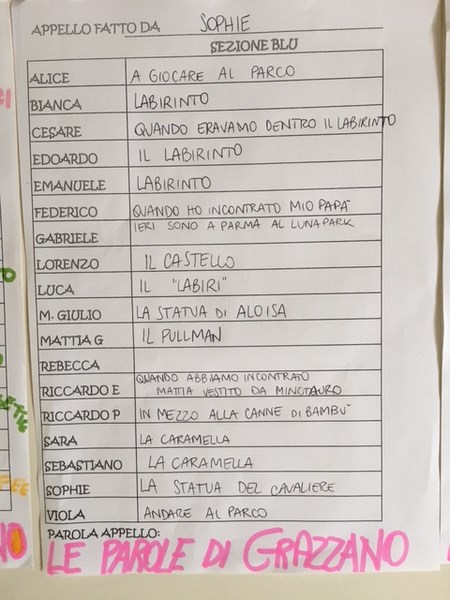 APPELLO FATTO DA SOPHIE
SEZIONE BLU
ALICE A GIOCARE AL PARCO
BIANCA LABIRINTO
CESARE QUANDO ERAVAMO DENTRO IL LABIRINTO
EDOARDO IL LABIRINTO
EMANUELE LABIRINTO
FEDERICO QUANDO HO INCONTRATO MIO PAPÀ
GABRIELE IERI SONO A PARMA AL LUNAPARK
LORENZO IL CASTELLO
LUCA IL "LABIRI"
M. GIULIO LA STATUA DI ALOISA
MATTIA G IL PULLMAN
REBECCA
RICCARDO E QUANDO ABBIAMO INCONTRATO
MATTIA VESTITO DA MINOTAURO
RICCARDO P IN MEZZO ALLA CANNE DI BAMBÙ
SARA LA CARAMELLA
SEBASTIANO LA CARAMELLA
SOPHIE LA STATUA DEL CAVALIERE
VIOLA ANDARE AL PARCO
PAROLA APPELLO:
LE PAROLE DI GRAZZANO